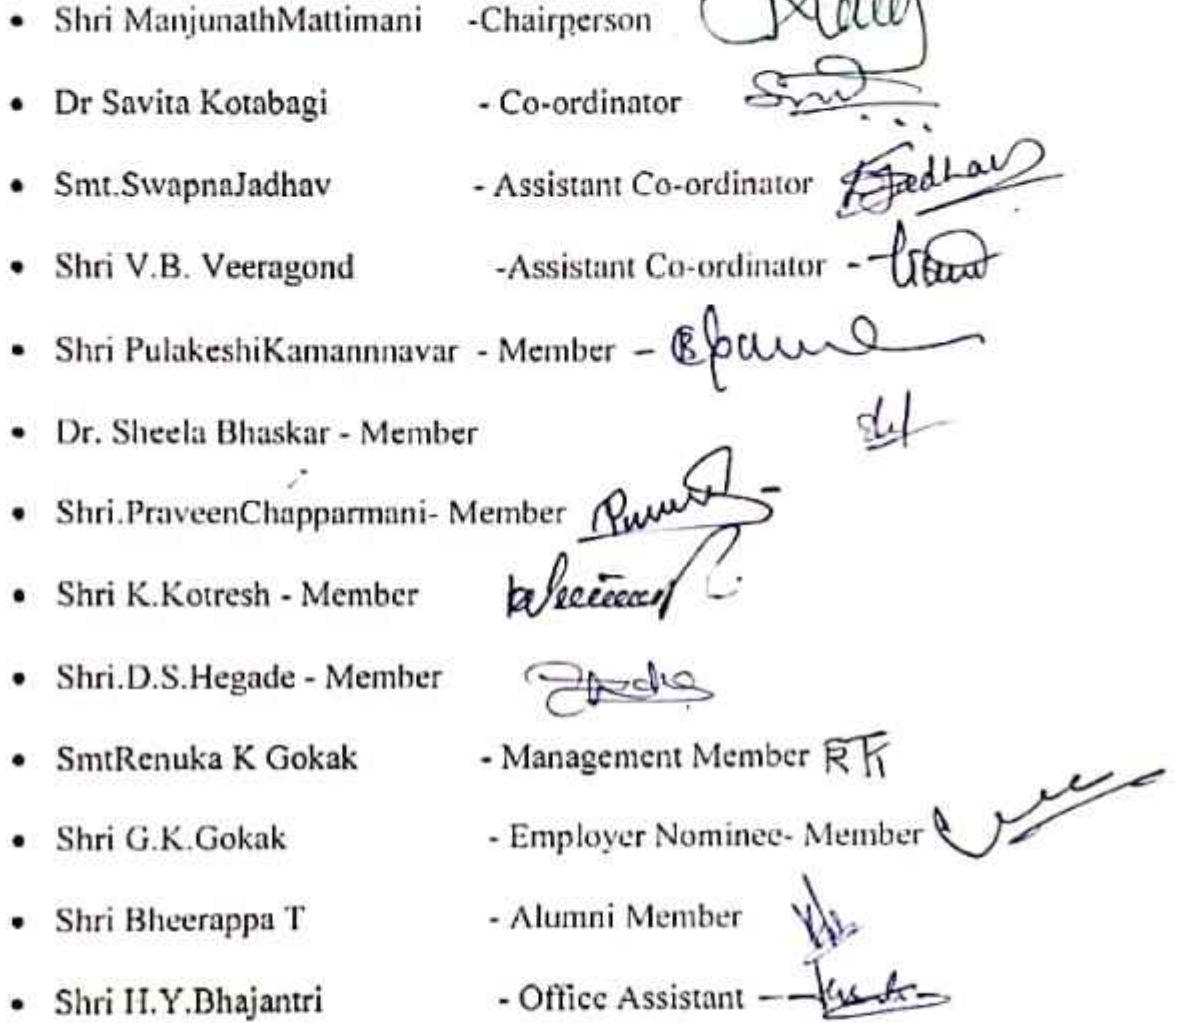 • Shri ManjunathMattimani -Chairperson
• Dr Savita Kotabagi - Co-ordinator
• Smt.SwapnaJadhav - Assistant Co-ordinator Jadhav
• Shri V.B. Veeragond -Assistant Co-ordinator -
• Shri PulakeshiKamannnavar - Member -
• Dr. Sheela Bhaskar - Member
• Shri.PraveenChapparmani- Member
• Shri K.Kotresh - Member
• Shri.D.S.Hegade - Member
• SmtRenuka K Gokak - Management Member
• Shri G.K.Gokak - Employer Nominee- Member
• Shri Bheerappa T - Alumni Member
• Shri H.Y.Bhajantri - Office Assistant -